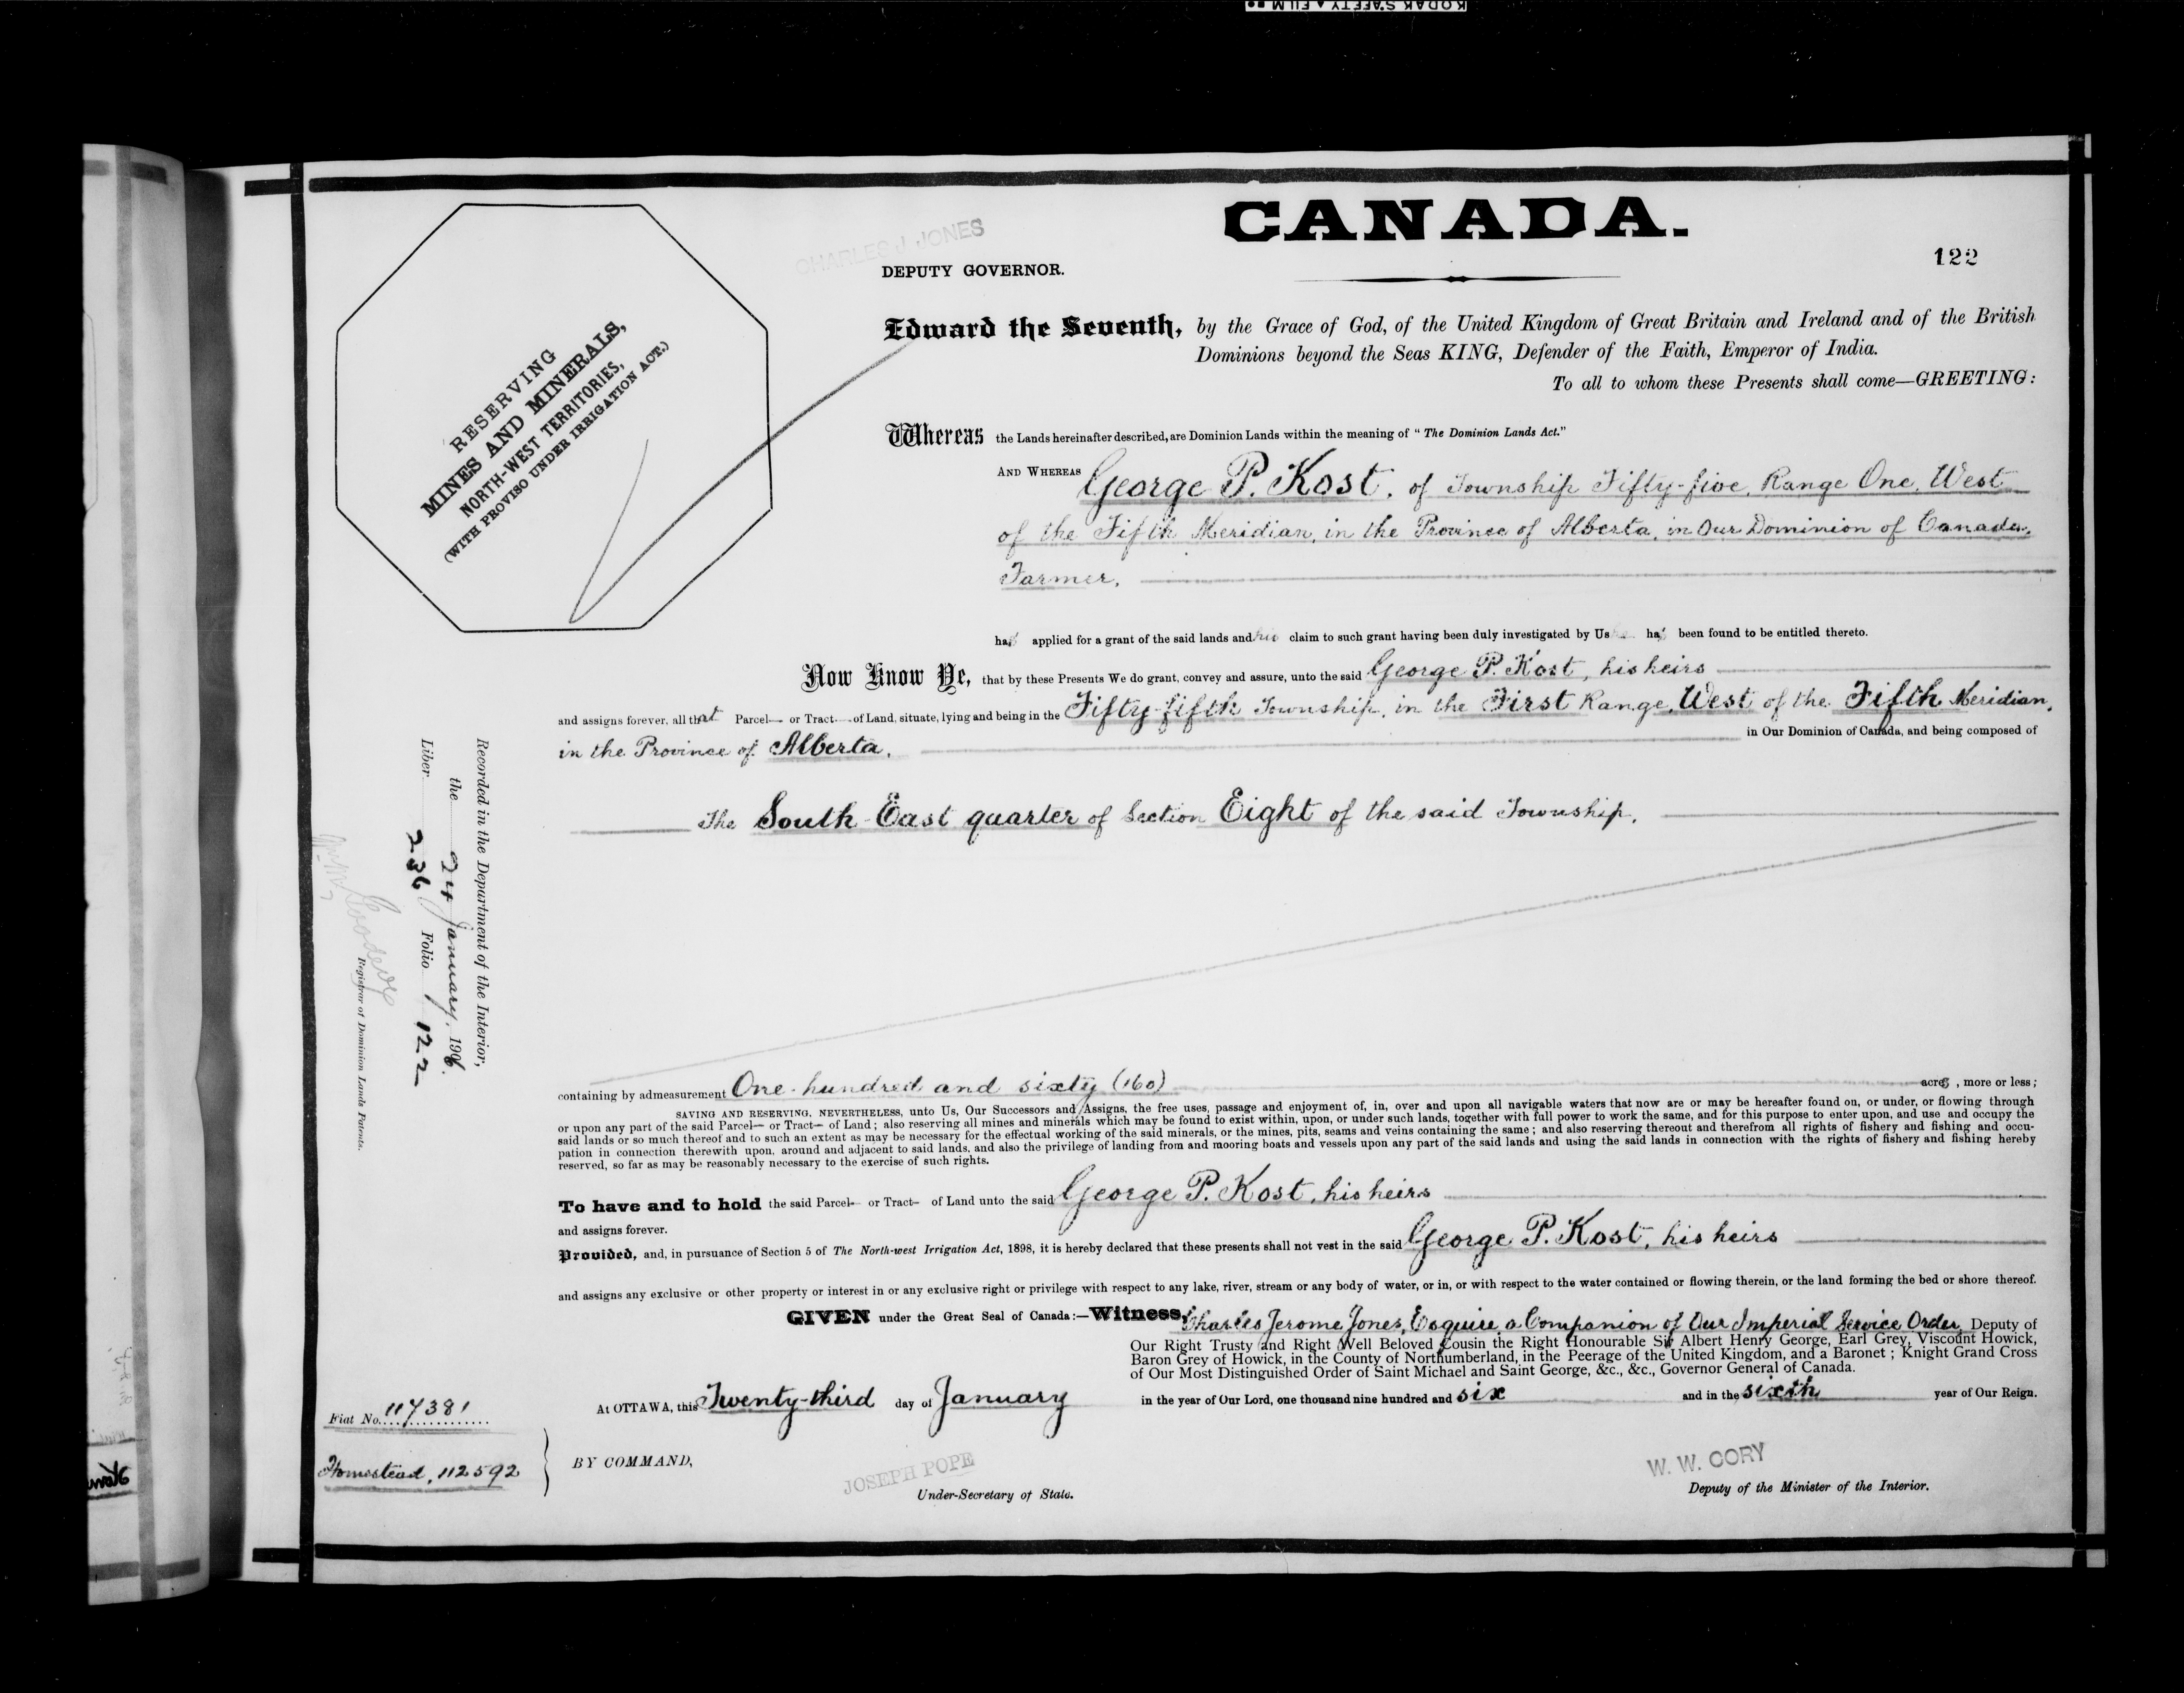 KODAK SAFETY FILM
CANADA.
122
CHARLES J. JONES
DEPUTY GOVERNOR.
RESERVING
MINES AND MINERALS,
NORTH-WEST TERRITORIES,
(WITH PROVISO UNDER IRRIGATION ACT.)
Edward the Seventh, by the Grace of God, of the United Kingdom of Great Britain and Ireland and of the British
Dominions beyond the Seas KING, Defender of the Faith, Emperor of India.
To all to whom these Presents shall come—GREETING:
Whereas the Lands hereinafter described, are Dominion Lands within the meaning of "The Dominion Lands Act."
AND WHEREAS George P. Kost, of Township Fifty-five, Range One, West
of the Fifth Meridian, in the Province of Alberta, in Our Dominion of Canada,
Farmer,
has applied for a grant of the said lands and his claim to such grant having been duly investigated by Us he has been found to be entitled thereto.
Now Know Ye, that by these Presents We do grant, convey and assure, unto the said George P. Kost, his heirs
and assigns forever, all that Parcel— or Tract— of Land, situate, lying and being in the Fifty-fifth Township, in the First Range, West of the Fifth Meridian,
in the Province of Alberta, in Our Dominion of Canada, and being composed of
The South-East quarter of Section Eight of the said Township.
Recorded in the Department of the Interior,
the 24 January, 1906.
Liber 236 Folio 122
Registrar of Dominion Lands Patents.
containing by admeasurement One hundred and sixty (160) acres, more or less;
SAVING AND RESERVING, NEVERTHELESS, unto Us, Our Successors and Assigns, the free uses, passage and enjoyment of, in, over and upon all navigable waters that now are or may be hereafter found on, or under, or flowing through
or upon any part of the said Parcel— or Tract— of Land; also reserving all mines and minerals which may be found to exist within, upon, or under such lands, together with full power to work the same, and for this purpose to enter upon, and use and occupy the
said lands or so much thereof and to such an extent as may be necessary for the effectual working of the said minerals, or the mines, pits, seams and veins containing the same; and also reserving thereout and therefrom all rights of fishery and fishing and occu-
pation in connection therewith upon, around and adjacent to said lands, and also the privilege of landing from and mooring boats and vessels upon any part of the said lands and using the said lands in connection with the rights of fishery and fishing hereby
reserved, so far as may be reasonably necessary to the exercise of such rights.
To have and to hold the said Parcel— or Tract— of Land unto the said George P. Kost, his heirs
and assigns forever.
Provided, and, in pursuance of Section 5 of The North-west Irrigation Act, 1898, it is hereby declared that these presents shall not vest in the said George P. Kost, his heirs
and assigns any exclusive or other property or interest in or any exclusive right or privilege with respect to any lake, river, stream or any body of water, or in, or with respect to the water contained or flowing therein, or the land forming the bed or shore thereof.
GIVEN under the Great Seal of Canada:—Witness, Charles Jerome Jones, Esquire, a Companion of Our Imperial Service Order, Deputy of
Our Right Trusty and Right Well Beloved Cousin the Right Honourable Sir Albert Henry George, Earl Grey, Viscount Howick,
Baron Grey of Howick, in the County of Northumberland, in the Peerage of the United Kingdom, and a Baronet; Knight Grand Cross
of Our Most Distinguished Order of Saint Michael and Saint George, &c., &c., Governor General of Canada.
At OTTAWA, this Twenty-third day of January in the year of Our Lord, one thousand nine hundred and six and in the sixth year of Our Reign.
Fiat No. 117381
Homestead, 112592
BY COMMAND,
JOSEPH POPE
Under-Secretary of State.
W. W. CORY
Deputy of the Minister of the Interior.